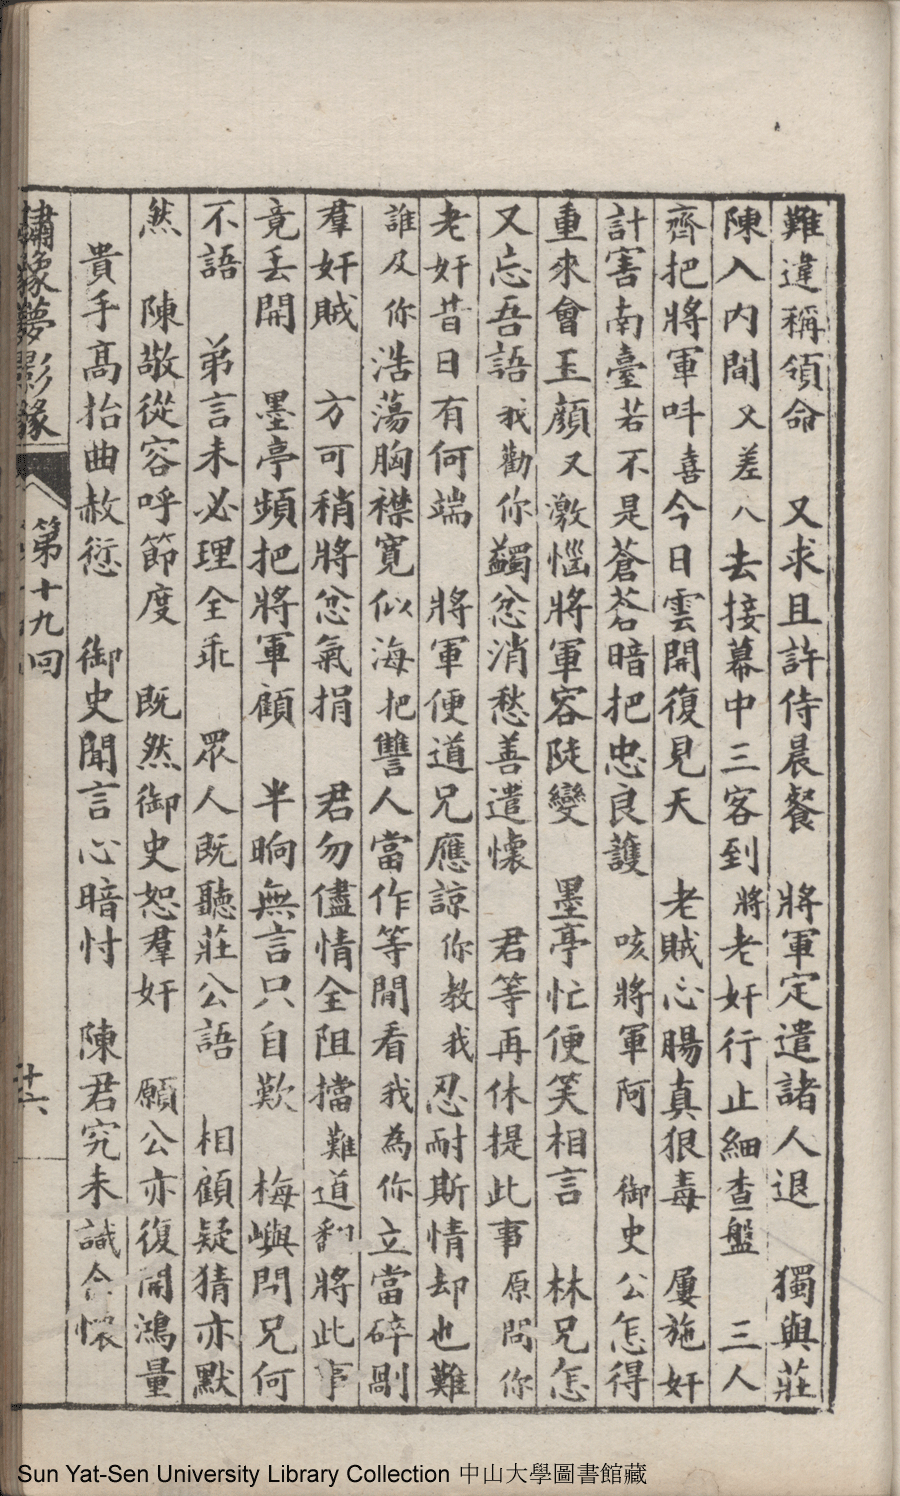 難違稱領命　又求且許侍晨餐　將軍定遣諸人退　獨與莊
陳入內間又差八去接幕中三客到將老奸行止細查盤　三人
齊把將軍呌喜今日雲開復見天　老賊心腸真狠毒　屢施奸
計害南臺若不是蒼蒼暗把忠良護　咳將軍阿　御史公怎得
重來會玉顏又激惱將軍容陡變　墨亭忙便笑相言　林兄怎
又忘吾語我勸你蠲忿消愁善遣懷　君等再休提此事原問你
老奸昔日有何端　將軍便道兄應諒你教我忍耐斯情却也難
誰及你浩蕩胸襟寬似海把讐人當作等閒看我為你立當碎剮
羣奸賊　方可稍將忿氣捐　君勿儘情全阻擋難道翻將此事
竟丟開　墨亭頻把將軍顧　半晌無言只自歎　梅嶼問兄何
不語　弟言未必理全乖　眾人既聽莊公語　相顧疑猜亦默
然　陳敬從容呼節度　既然御史恕羣奸　願公亦復開鴻量
貴手高抬曲赦愆　御史聞言心暗忖　陳君究未識含懷
繡像夢影緣
第十九回
十六
Sun Yat-Sen University Library Collection 中山大學圖書館藏